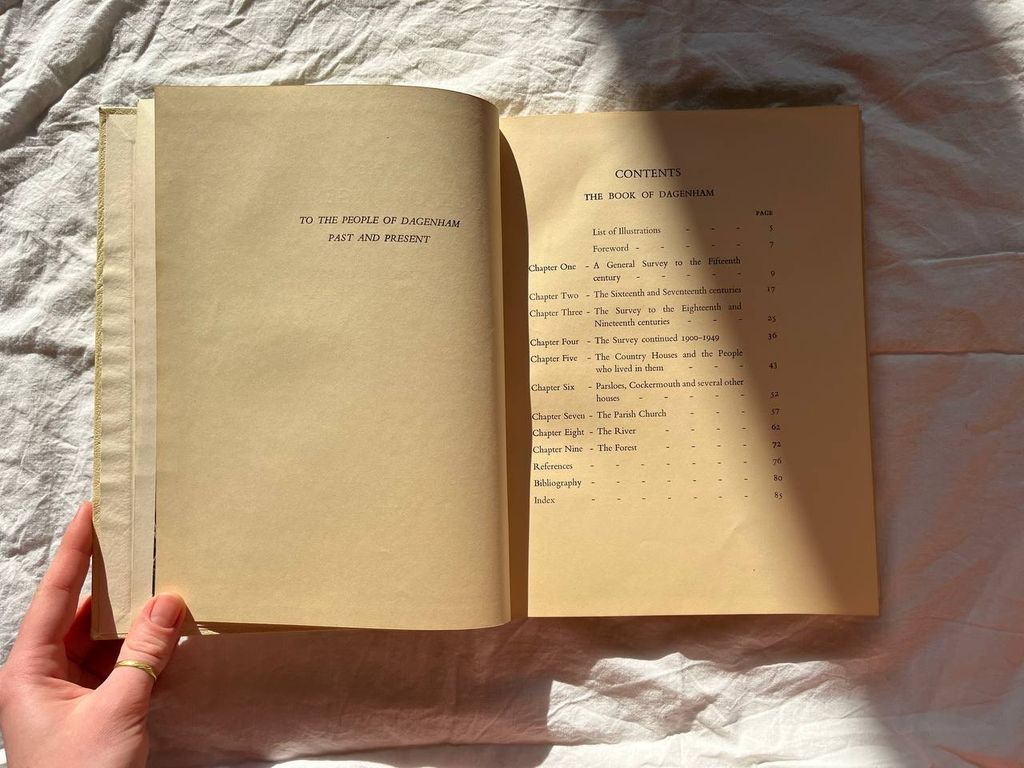 TO THE PEOPLE OF DAGENHAM
PAST AND PRESENT
CONTENTS
THE BOOK OF DAGENHAM
PAGE
List of Illustrations - - - 5
Foreword - - - - 7
Chapter One - A General Survey to the Fifteenth
century - - - - - 9
Chapter Two - The Sixteenth and Seventeenth centuries 17
Chapter Three - The Survey to the Eighteenth and
Nineteenth centuries - - - 25
Chapter Four - The Survey continued 1900–1949 36
Chapter Five - The Country Houses and the People
who lived in them - - - 43
Chapter Six - Parsloes, Cockermouth and several other
houses - - - - - 52
Chapter Seven - The Parish Church - - - - 57
Chapter Eight - The River - - - - - 62
Chapter Nine - The Forest - - - - - 72
References - - - - - - - 76
Bibliography - - - - - - - 80
Index - - - - - - - 85